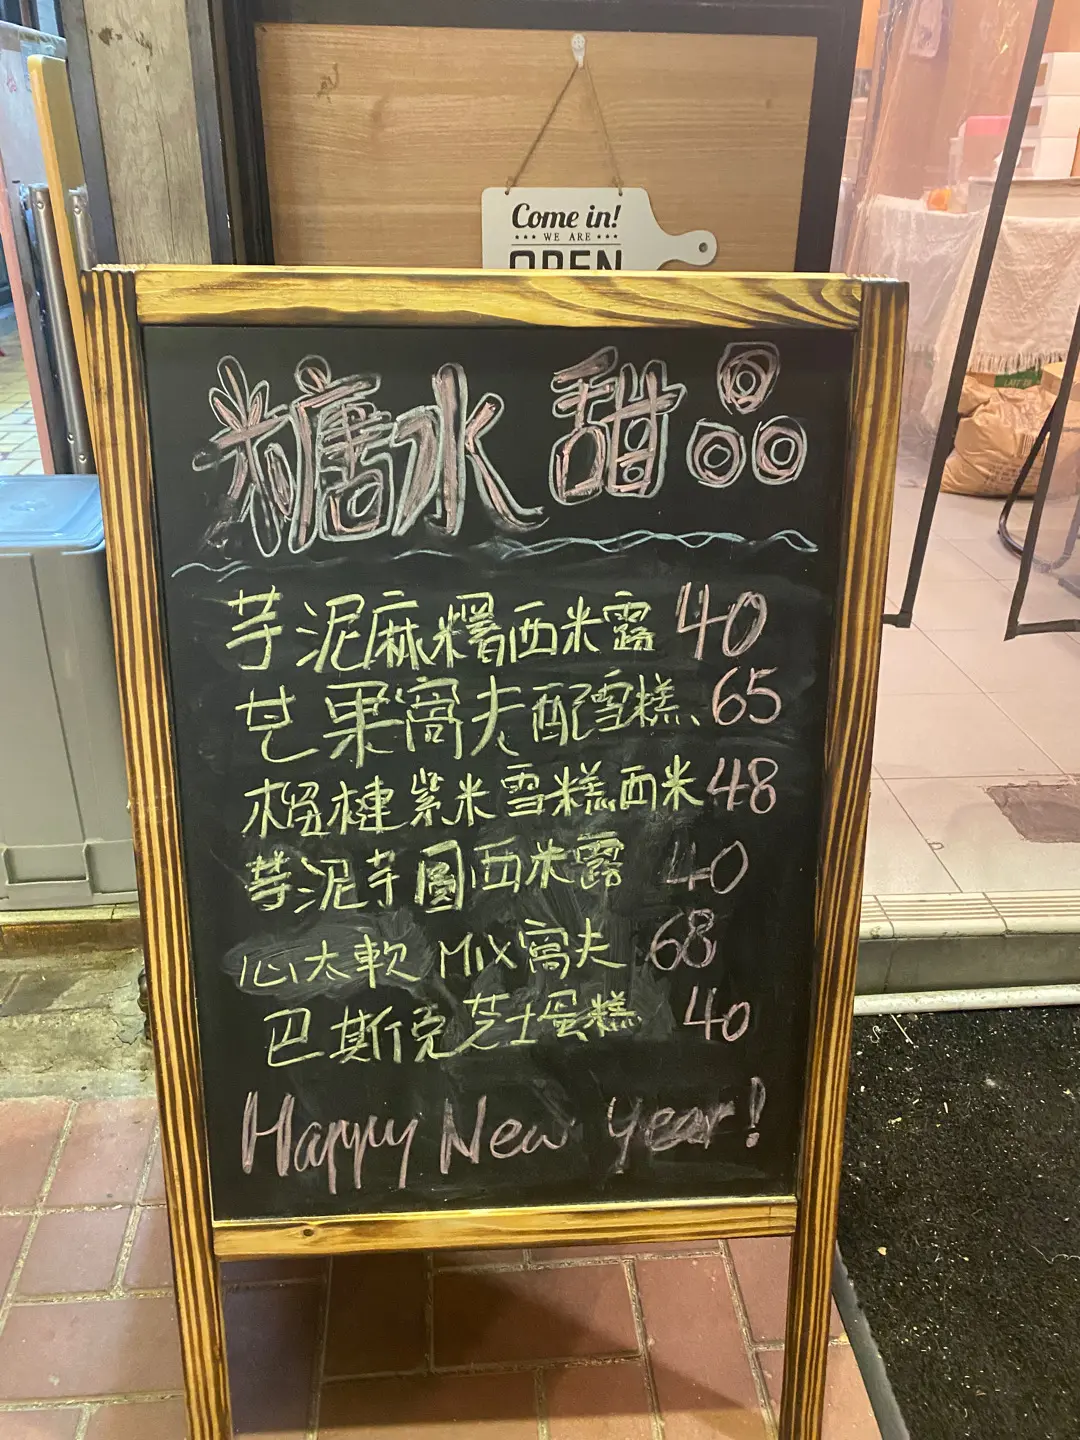 Come in!
WE ARE
OPEN
糖水 甜品
芋泥麻糬西米露 40
芒果窩夫配雪糕 65
榴槤紫米雪糕西米 48
芋泥芋圓西米露 40
心太軟 MIX窩夫 68
巴斯克芝士蛋糕 40
Happy New year!